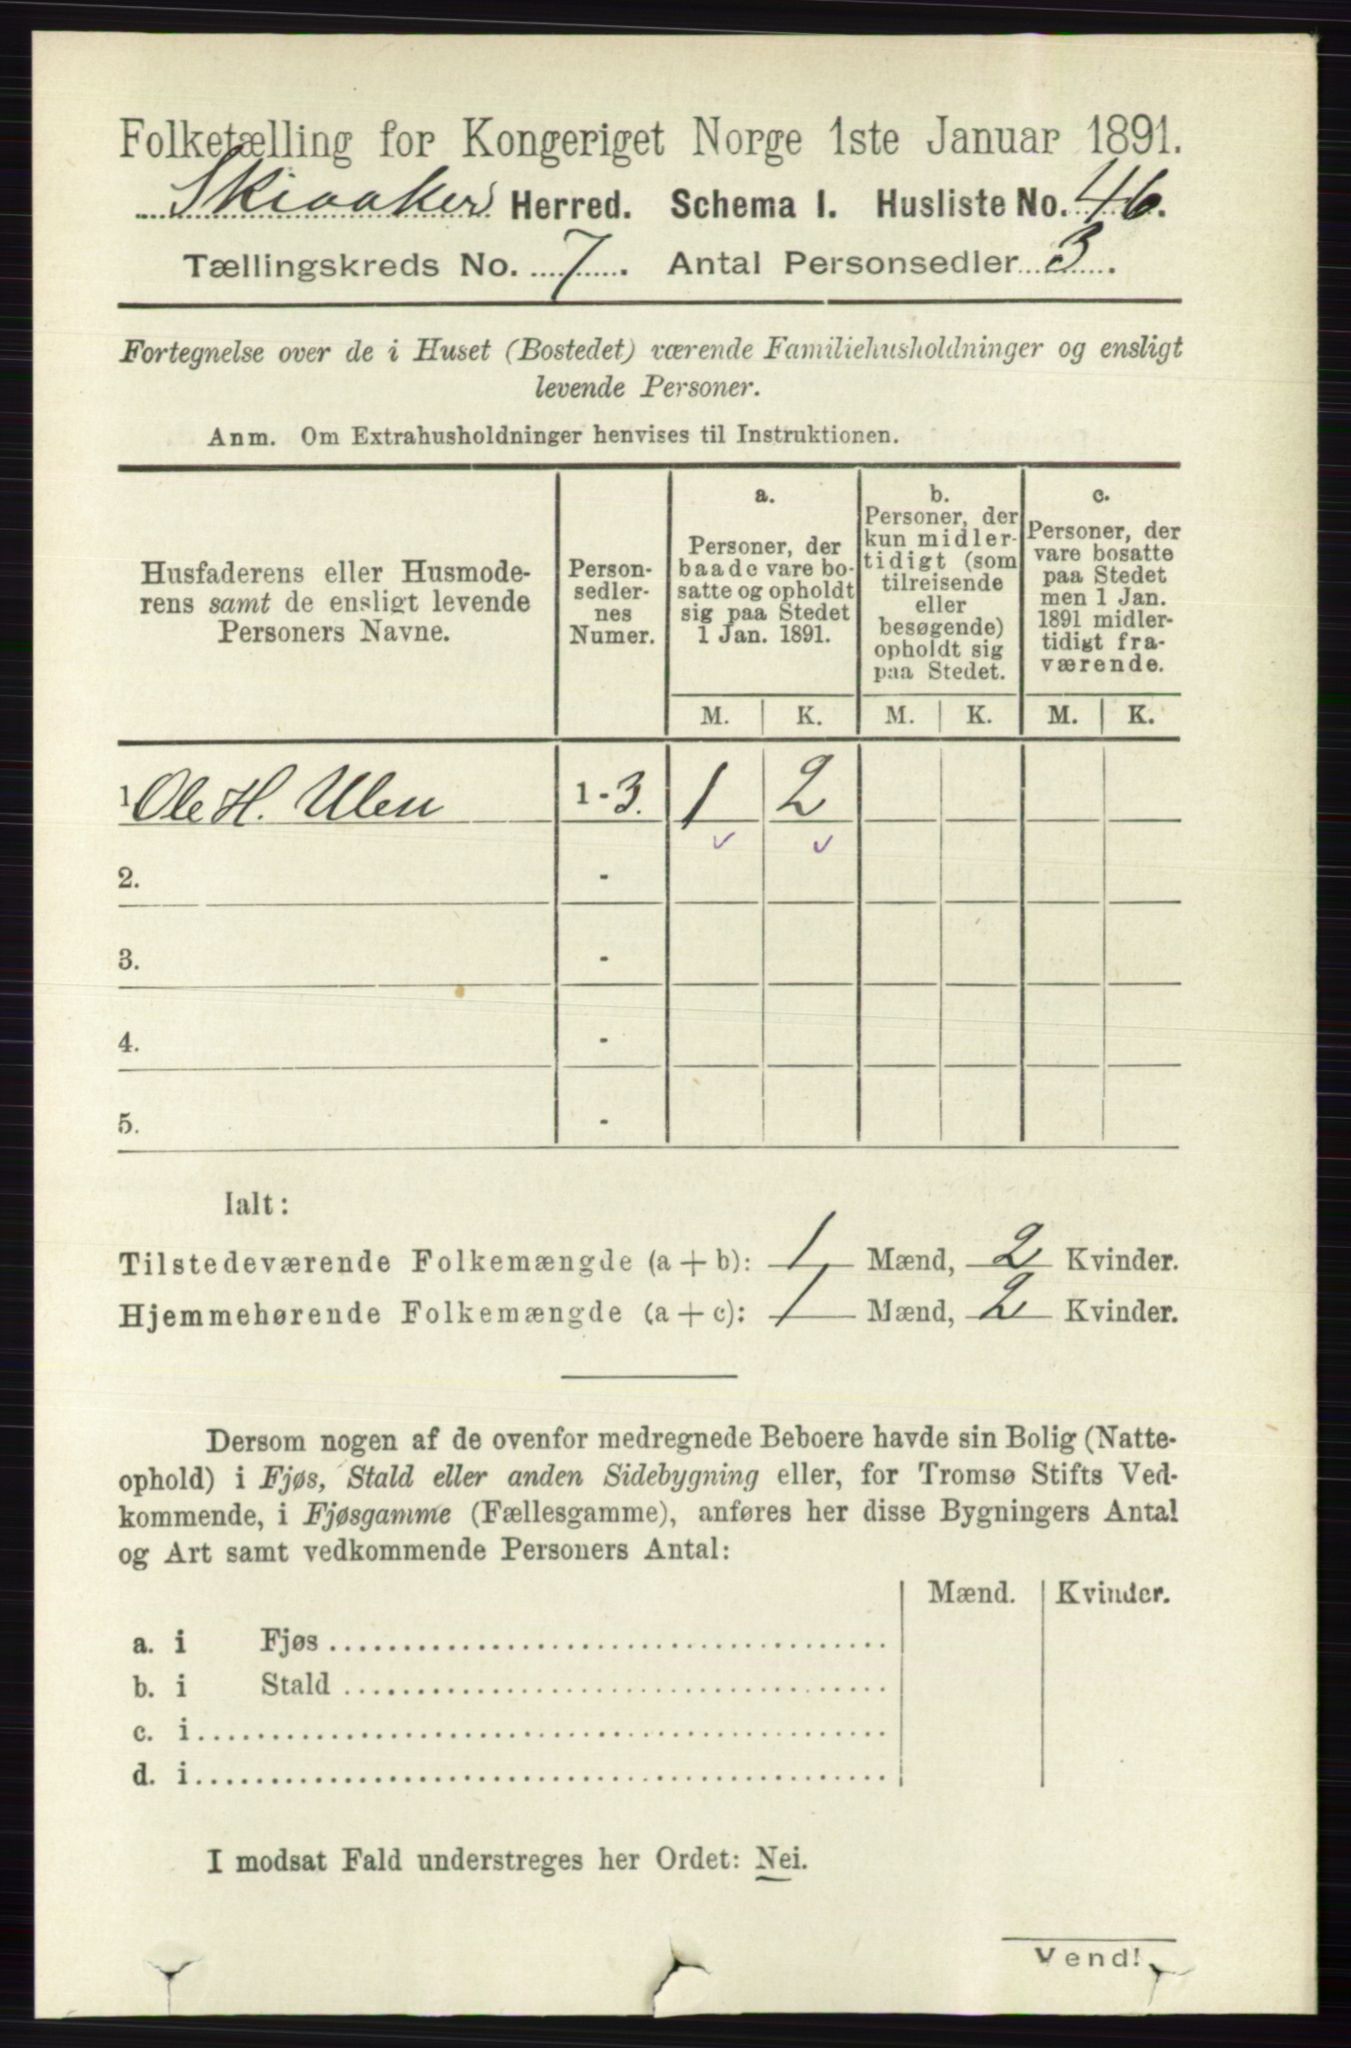 Folketælling for Kongeriget Norge 1ste Januar 1891.
Skiaaker Herred. Schema I. Husliste No. 46.
Tællingskreds No. 7. Antal Personsedler 3.
Fortegnelse over de i Huset (Bostedet) værende Familiehusholdninger og ensligt
levende Personer.
Anm. Om Extrahusholdninger henvises til Instruktionen.
Husfaderens eller Husmode-
rens samt de ensligt levende
Personers Navne.
Person-
sedler-
nes
Numer.
a.
Personer, der
baade vare bo-
satte og opholdt
sig paa Stedet
1 Jan. 1891.
b.
Personer, der
kun midler-
tidigt (som
tilreisende
eller
besøgende)
opholdt sig
paa Stedet.
c.
Personer, der
vare bosatte
paa Stedet
men 1 Jan.
1891 midler-
tidigt fra-
værende.
M. K. M. K. M. K.
1 Ole H. Ulen 1 - 3. 1 2
2. -
3. -
4. -
5. -
Ialt:
Tilstedeværende Folkemængde (a + b): 1 Mænd, 2 Kvinder.
Hjemmehørende Folkemængde (a + c): 1 Mænd, 2 Kvinder.
Dersom nogen af de ovenfor medregnede Beboere havde sin Bolig (Natte-
ophold) i Fjøs, Stald eller anden Sidebygning eller, for Tromsø Stifts Ved-
kommende, i Fjøsgamme (Fællesgamme), anføres her disse Bygningers Antal
og Art samt vedkommende Personers Antal:
Mænd. Kvinder.
a. i Fjøs
b. i Stald
c. i
d. i
I modsat Fald understreges her Ordet: Nei.
Vend!